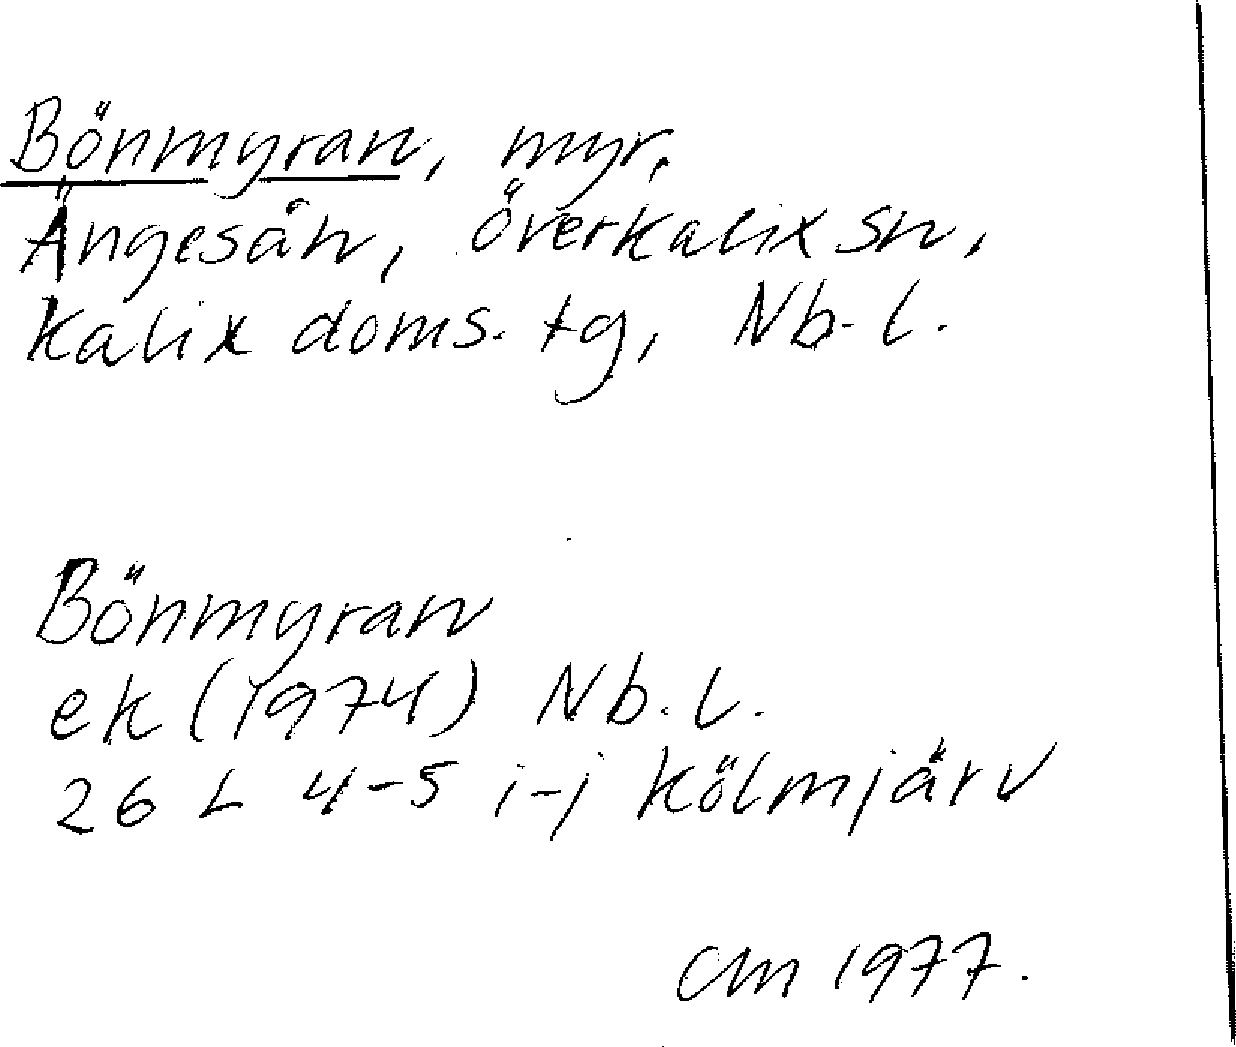 Bönmyran, myr,
Ängesån, överkalix sn,
Kalix doms. tg, Nb. l.
Bönmyran
ek (1974) Nb. l.
26 L 4-5 i-j Kölmjärv
CM 1977.